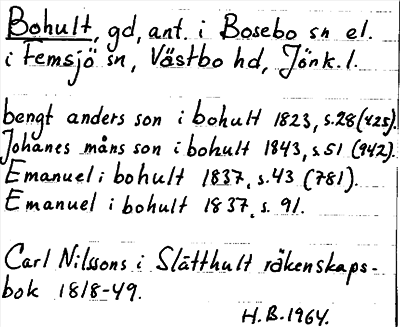 Bohult, gd, ant. i Bosebo sn el.
i Femsjö sn, Västbo hd, Jönk. l.
bengt anders son i bohult 1823, s.28 (425).
Johanes måns son i bohult 1843, s.51 (942).
Emanuel i bohult 1837, s.43 (781).
Emanuel i bohult 1837, s. 91.
Carl Nilssons i Slätthult räkenskaps-
bok 1818-49.
H.B. 1964.